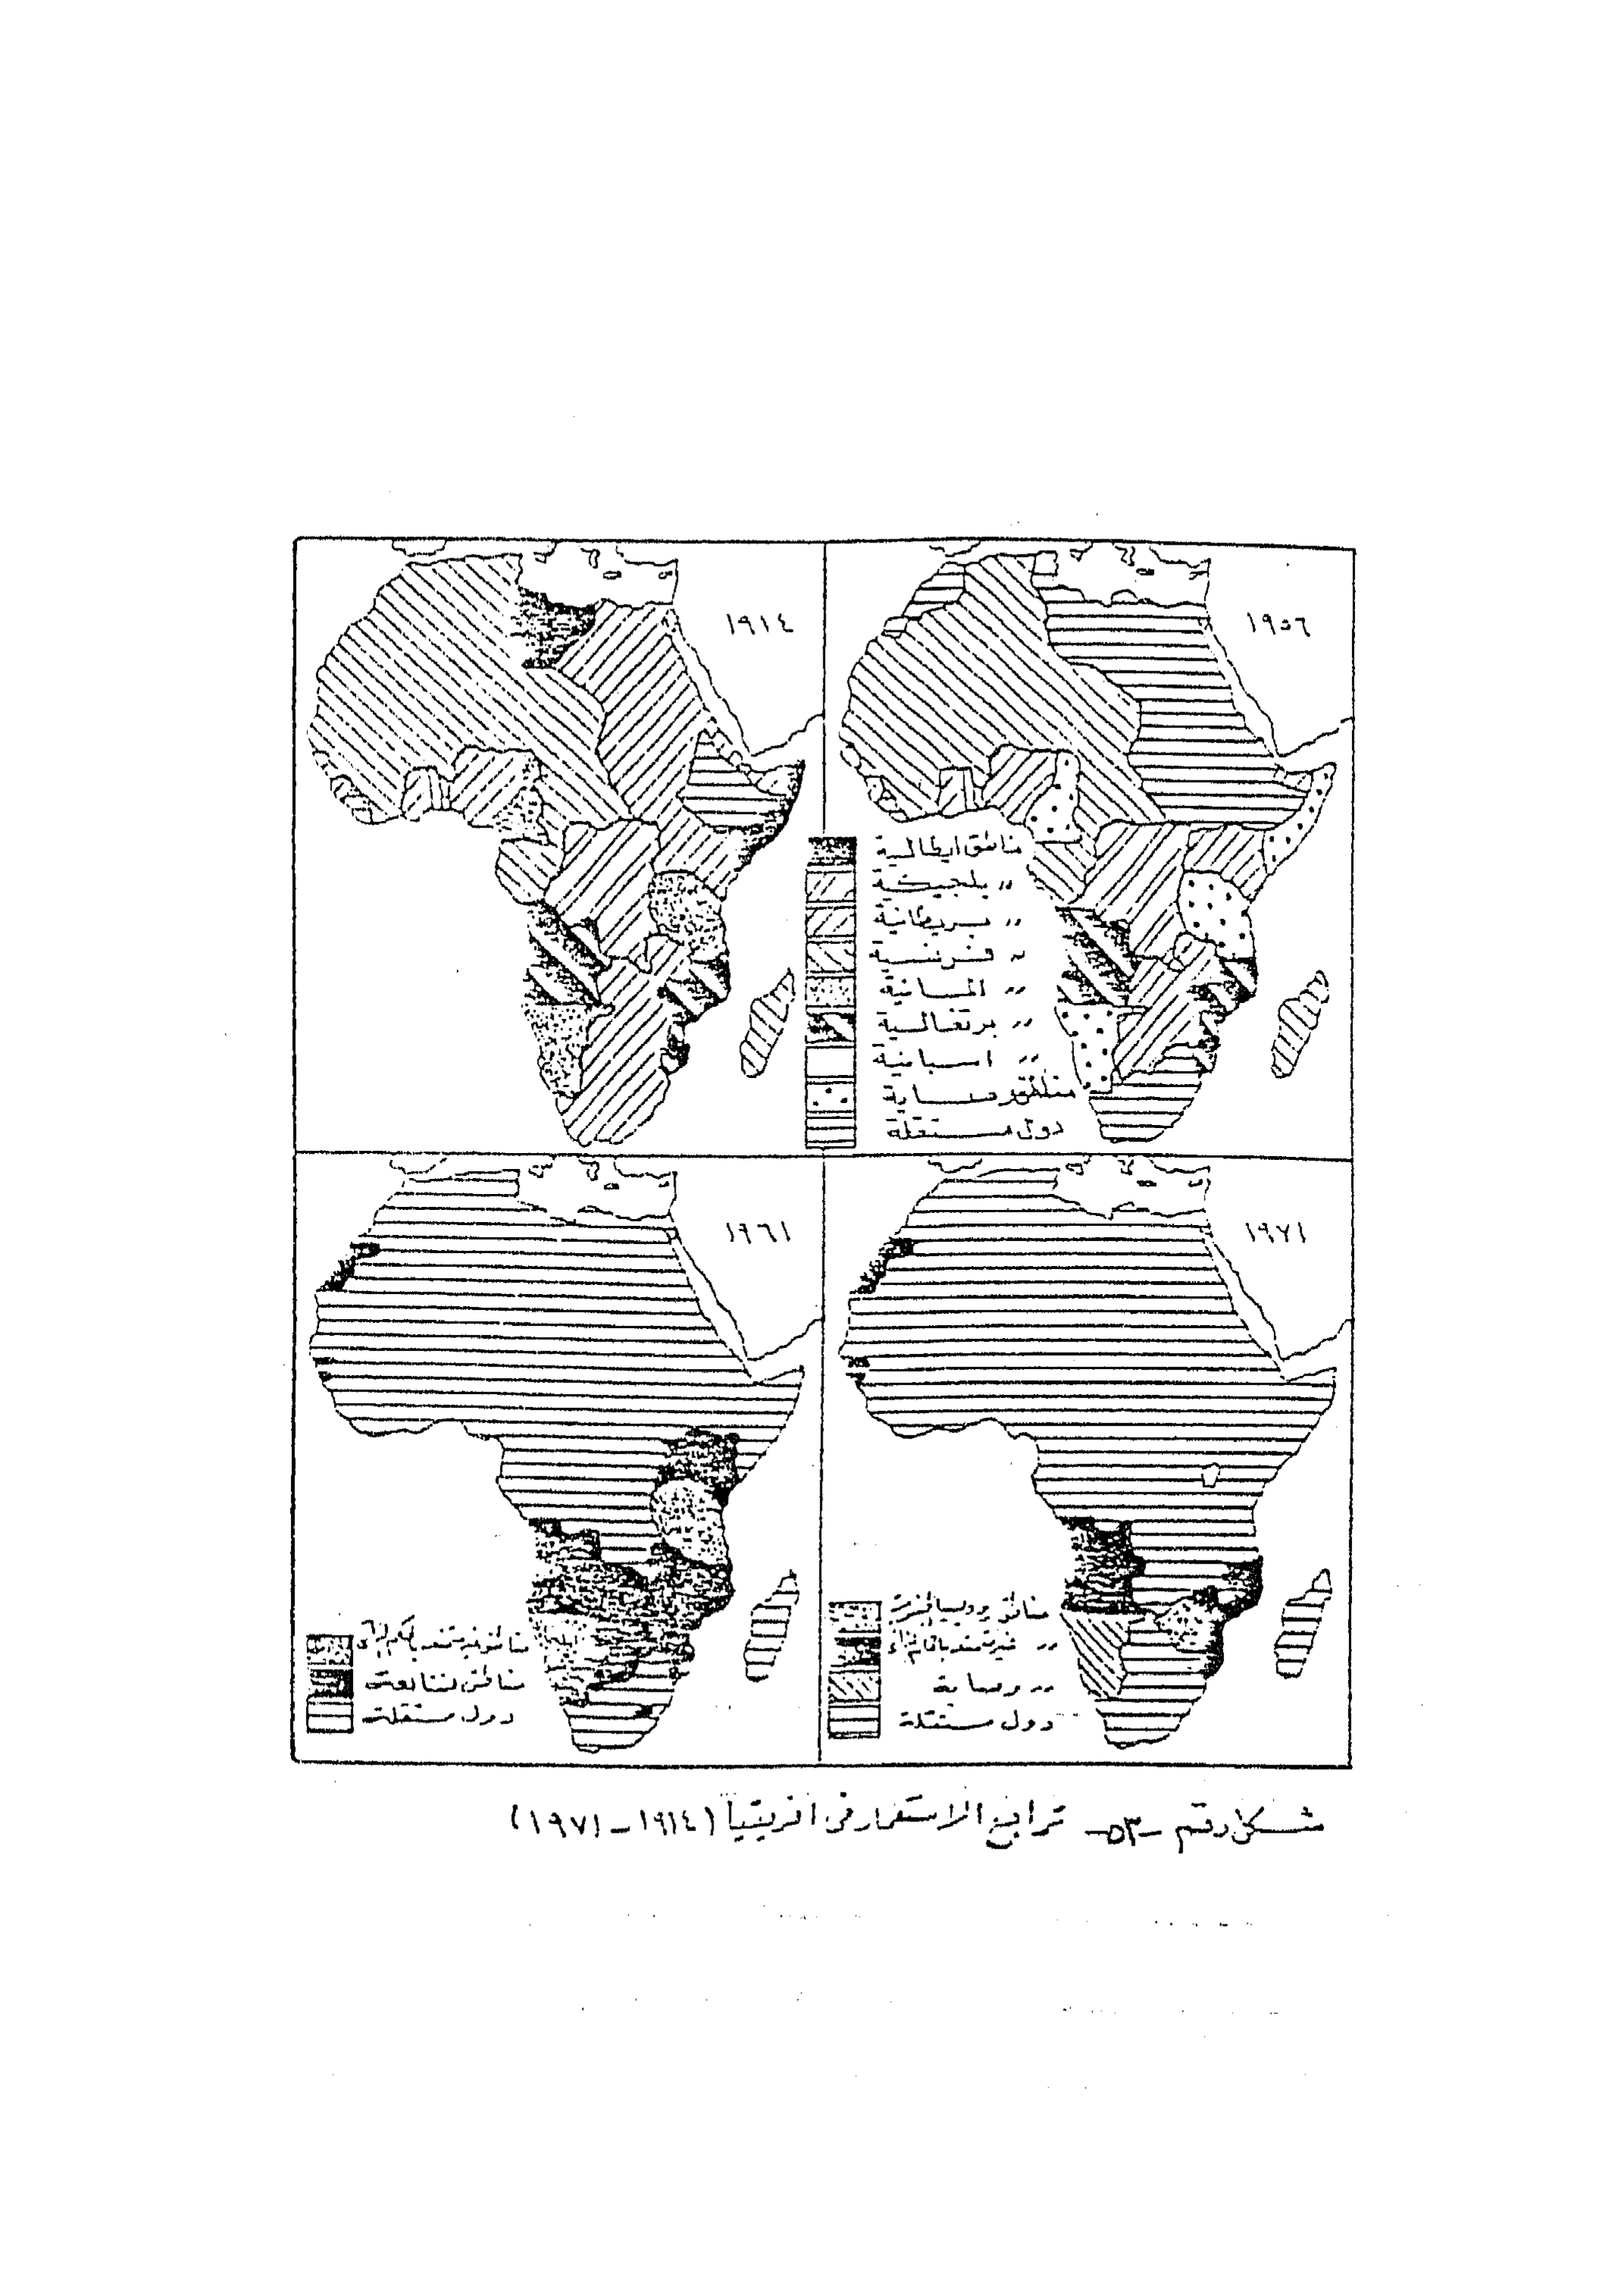 ١٩١٤
١٩٥٦
مناطق ايطالية
〃 بلجيكية
〃 بريطانية
〃 فرنسية
〃 المانية
〃 برتغالية
〃 اسبانية
مناطق وصاية
دول مستقلة
١٩٦١
١٩٧١
مناطق
مناطق
دول مستقلة
مناطق روديسيا
〃
〃 وصاية
دول مستقلة
شكل رقم -٥٣- تراجع الاستعمار فى افريقيا (١٩١٤-١٩٧١)